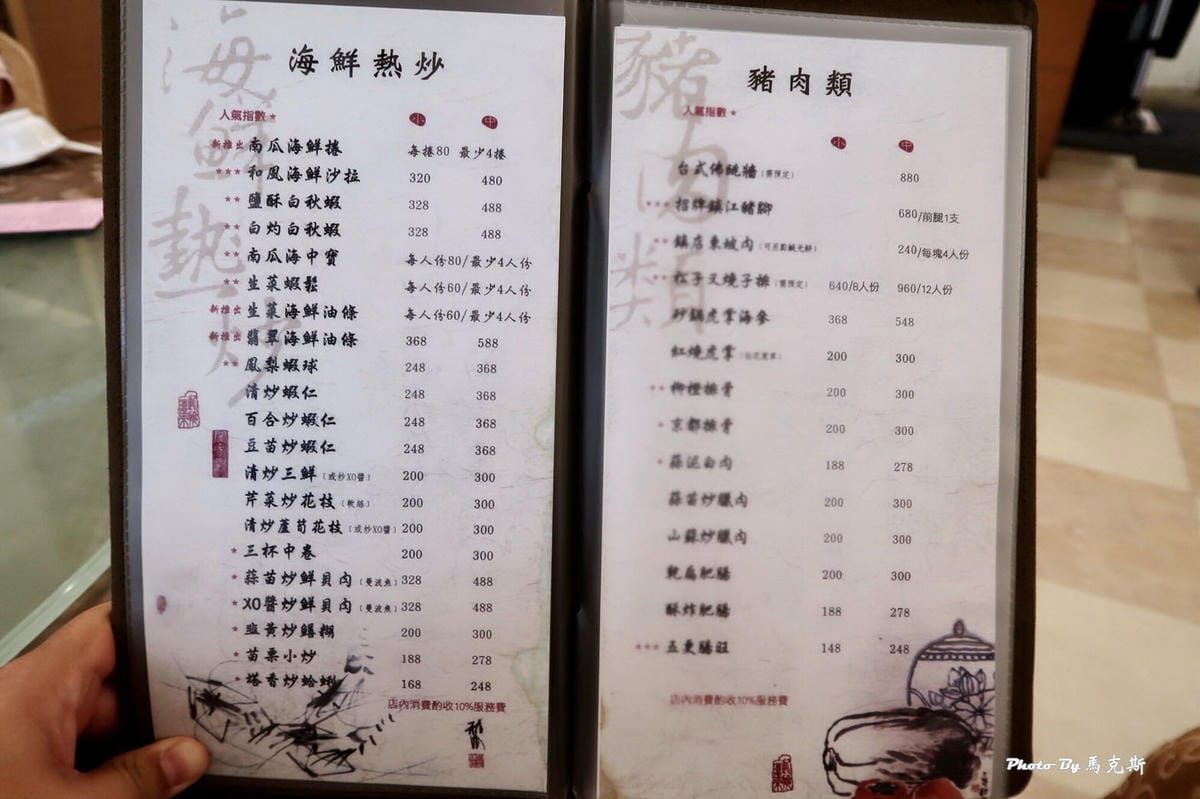 海鮮熱炒
海鮮熱炒
人氣指數★ 小 中
新推出 南瓜海鮮捲 每捲80 最少4捲
★★★ 和風海鮮沙拉 320 480
★★ 鹽酥白秋蝦 328 488
★★ 白灼白秋蝦 328 488
★★ 南瓜海中寶 每人份80/最少4人份
★★ 生菜蝦鬆 每人份60/最少4人份
新推出 生菜海鮮油條 每人份60/最少4人份
新推出 翡翠海鮮油條 368 588
★★ 鳳梨蝦球 248 368
清炒蝦仁 248 368
百合炒蝦仁 248 368
豆苗炒蝦仁 248 368
清炒三鮮(或炒XO醬) 200 300
芹菜炒花枝(軟絲) 200 300
清炒蘆筍花枝(或炒XO醬) 200 300
★ 三杯中卷 200 300
★ 蒜苗炒鮮貝肉(曼波魚) 328 488
★ XO醬炒鮮貝肉(曼波魚) 328 488
★ 韭黃炒鱔糊 200 300
★ 苗栗小炒 188 278
★ 塔香炒蛤蜊 168 248
店內消費酌收10%服務費
豬肉類
豬肉類
人氣指數★
小 中
台式佛跳牆(需預定) 880
★★★ 招牌鎮江豬腳 680/前腿1支
★★ 鎮店東坡肉 240/每塊4人份
★★ 松子叉燒子排(需預定) 640/8人份 960/12人份
砂鍋虎掌海參 368 548
紅燒虎掌 200 300
★★ 柳橙排骨 200 300
★ 京都排骨 200 300
★ 蒜泥白肉 188 278
蒜苗炒臘肉 200 300
山蘇炒臘肉 200 300
乾扁肥腸 200 300
酥炸肥腸 188 278
★★★ 五更腸旺 148 248
店內消費酌收10%服務費
Photo By 馬克斯